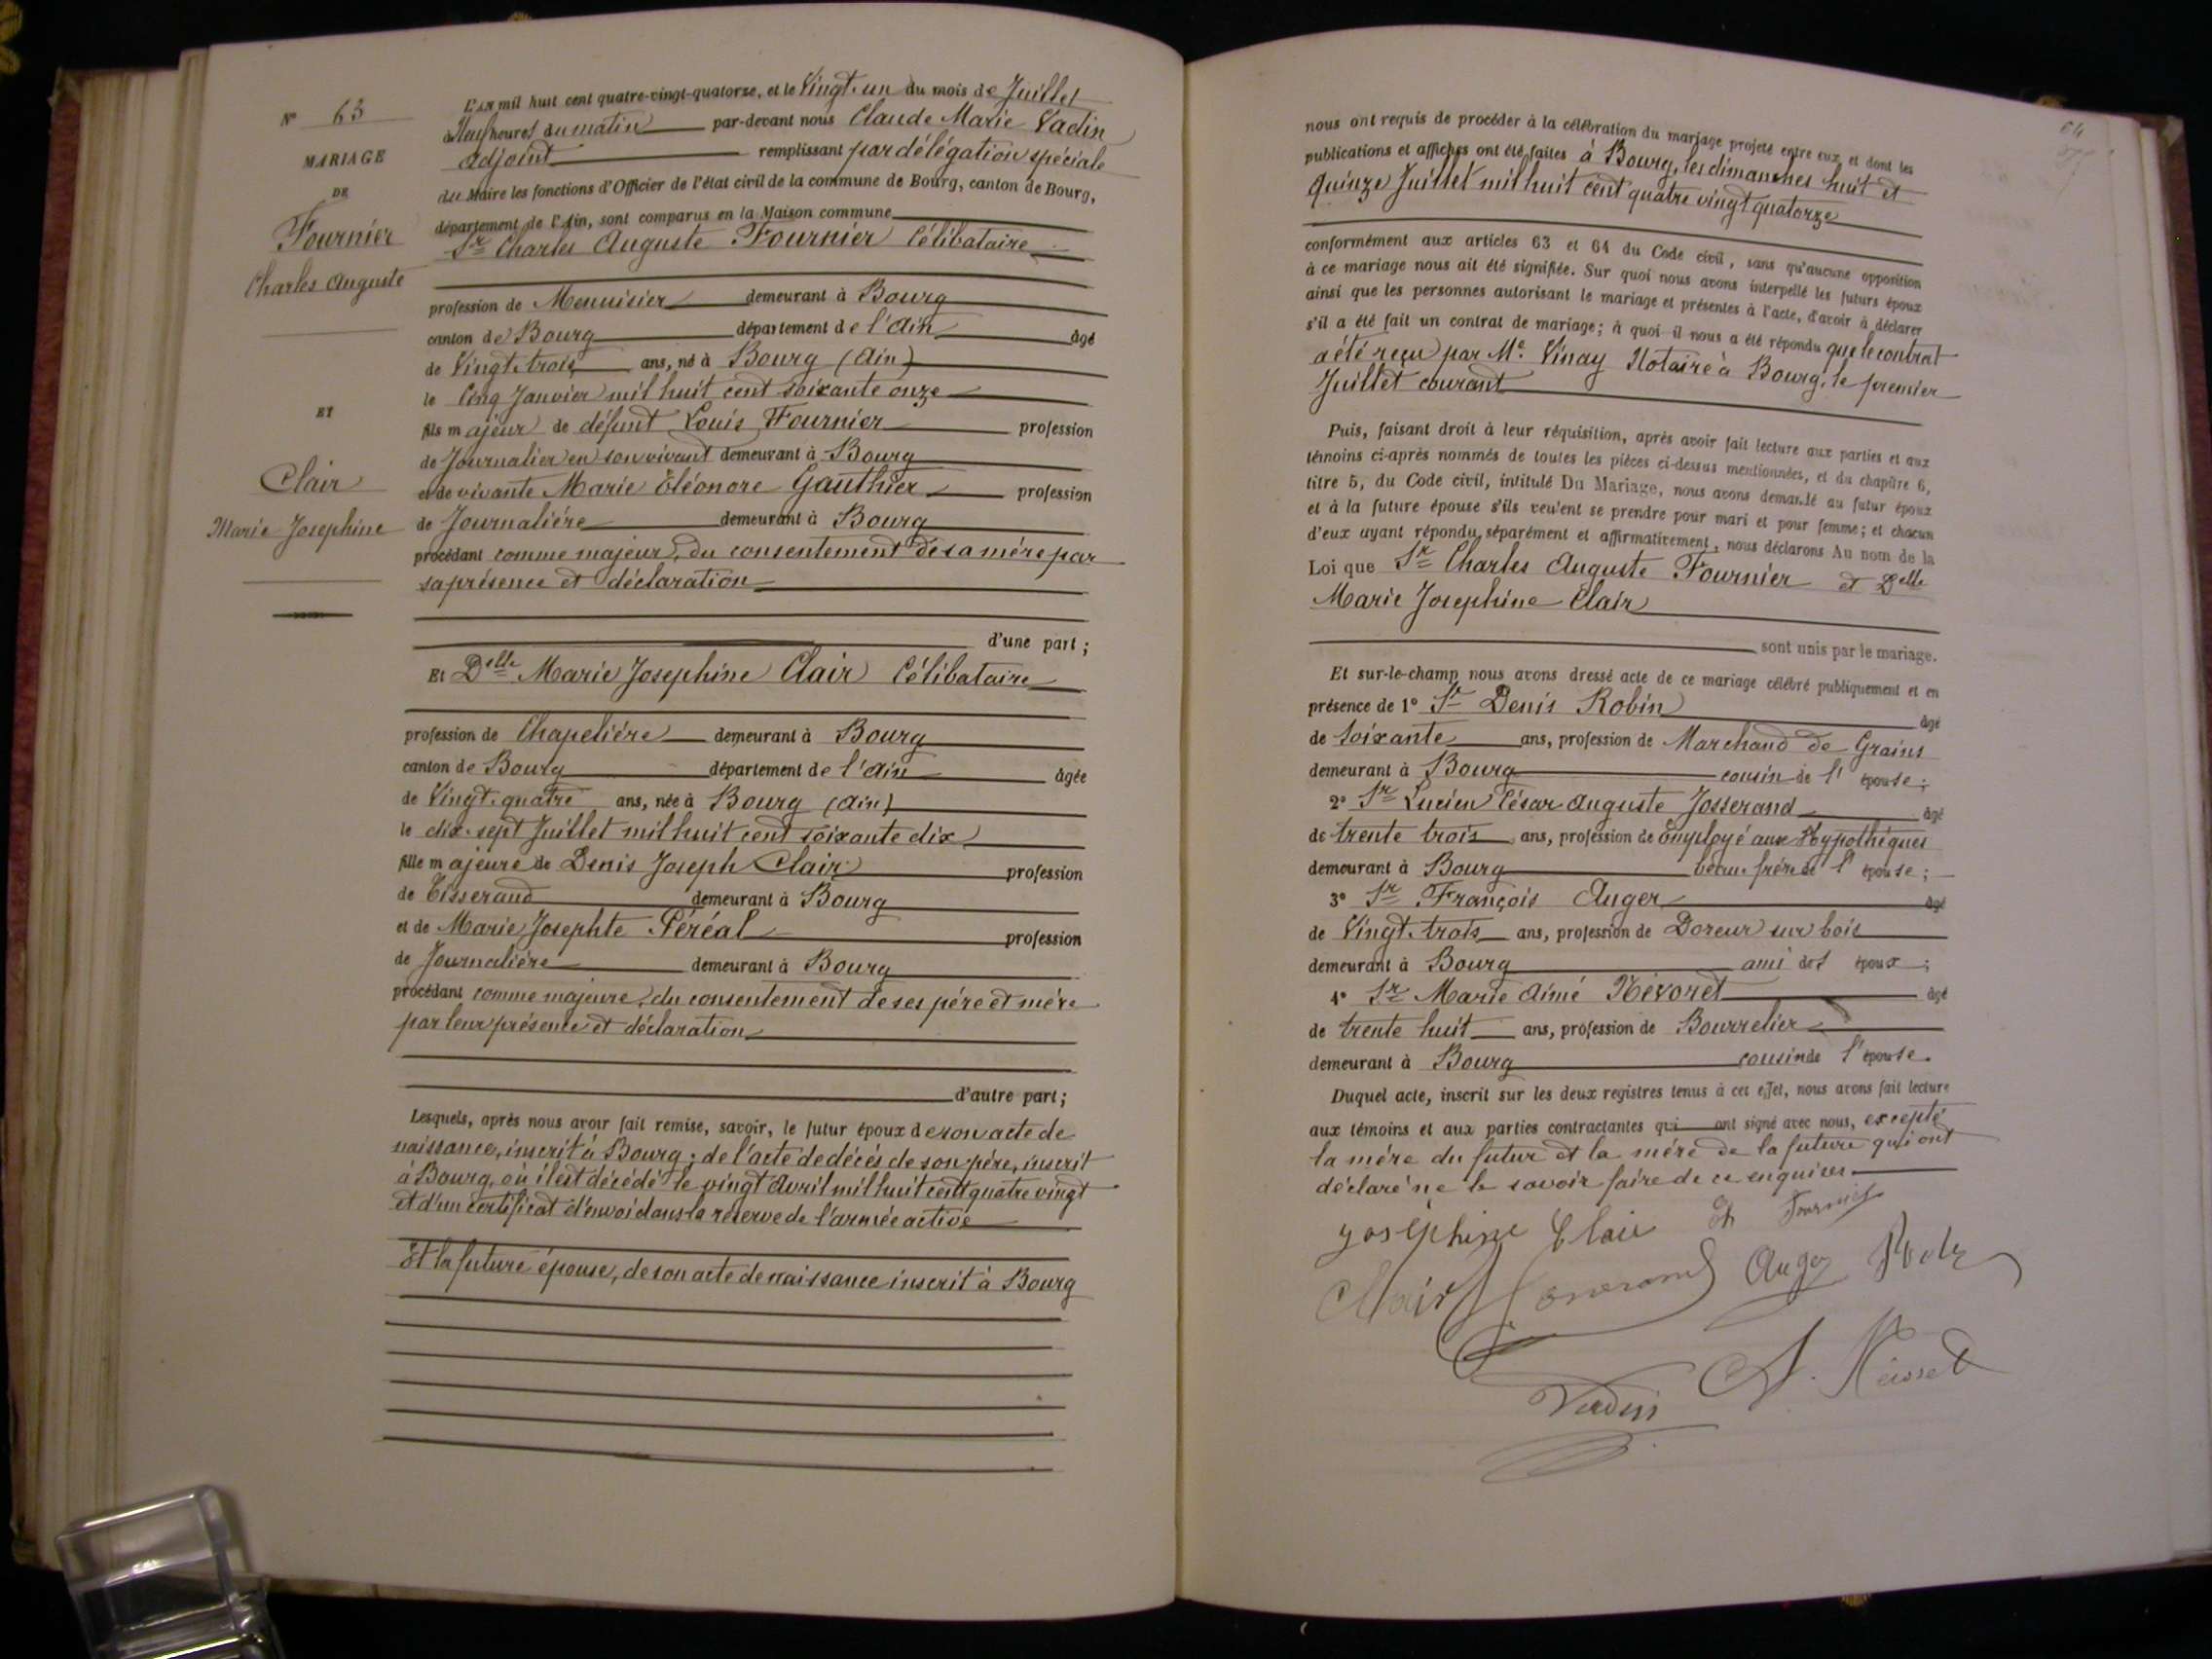 N° 63
MARIAGE
DE
Fournier
Charles Auguste
ET
Clair
Marie Josephine
L'an mil huit cent quatre-vingt-quatorze, et le Vingt-un du mois de Juillet
à Neuf heures du matin par-devant nous Claude Marie Vadin
adjoint remplissant par délégation spéciale
du Maire les fonctions d'Officier de l'état civil de la commune de Bourg, canton de Bourg,
département de l'Ain, sont comparus en la Maison commune
Sr Charles Auguste Fournier Célibataire
profession de Menuisier demeurant à Bourg
canton de Bourg département de l'Ain âgé
de Vingt-trois ans, né à Bourg (Ain)
le Cinq Janvier mil huit cent soixante onze
fils majeur de défunt Louis Fournier profession
de Journalier en son vivant demeurant à Bourg
et de vivante Marie Eléonore Gauthier profession
de Journalière demeurant à Bourg
procédant comme majeur, du consentement de sa mère par
sa présence et déclaration
d'une part ;
Et Delle Marie Josephine Clair Célibataire
profession de Chapelière demeurant à Bourg
canton de Bourg département de l'Ain âgée
de Vingt-quatre ans, née à Bourg (Ain)
le dix-sept Juillet mil huit cent soixante dix
fille majeure de Denis Joseph Clair profession
de Tisserand demeurant à Bourg
et de Marie Josephte Péréal profession
de Journalière demeurant à Bourg
procédant comme majeure, du consentement de ses père et mère
par leur présence et déclaration
d'autre part ;
Lesquels, après nous avoir fait remise, savoir, le futur époux de son acte de
naissance, inscrit à Bourg ; de l'acte de décès de son père, inscrit
à Bourg, où il est décédé le vingt Avril mil huit cent quatre vingt
et d'un certificat d'envoi dans la réserve de l'armée active
Et la future épouse, de son acte de naissance inscrit à Bourg
64
nous ont requis de procéder à la célébration du mariage projeté entre eux et dont les
publications et affiches ont été faites à Bourg, les dimanches huit et
quinze Juillet mil huit cent quatre vingt quatorze
conformément aux articles 63 et 64 du Code civil, sans qu'aucune opposition
à ce mariage nous ait été signifiée. Sur quoi nous avons interpellé les futurs époux
ainsi que les personnes autorisant le mariage et présentes à l'acte, d'avoir à déclarer
s'il a été fait un contrat de mariage ; à quoi il nous a été répondu que le contrat
a été reçu par Me. Vinay Notaire à Bourg, le premier
Juillet courant
Puis, faisant droit à leur réquisition, après avoir fait lecture aux parties et aux
témoins ci-après nommés de toutes les pièces ci-dessus mentionnées, et du chapitre 6,
titre 5, du Code civil, intitulé Du Mariage, nous avons demandé au futur époux
et à la future épouse s'ils veulent se prendre pour mari et pour femme ; et chacun
d'eux ayant répondu séparément et affirmativement, nous déclarons Au nom de la
Loi que Sr Charles Auguste Fournier et Delle
Marie Josephine Clair
sont unis par le mariage.
Et sur-le-champ nous avons dressé acte de ce mariage célébré publiquement et en
présence de 1° Sr Denis Robin âgé
de soixante ans, profession de Marchand de Grains
demeurant à Bourg cousin de l'épouse ;
2° Sr Lucien César Auguste Josserand âgé
de trente trois ans, profession de Employé aux Hypothèques
demeurant à Bourg beau-frère de l'épouse ;
3° Sr François Auger âgé
de Vingt-trois ans, profession de Doreur sur bois
demeurant à Bourg ami des époux ;
4° Sr Marie Aimé Névoret âgé
de trente huit ans, profession de Bourrelier
demeurant à Bourg cousin de l'épouse.
Duquel acte, inscrit sur les deux registres tenus à cet effet, nous avons fait lecture
aux témoins et aux parties contractantes qui ont signé avec nous, excepté
la mère du futur et la mère de la future qui ont
déclaré ne le savoir faire de ce enquises.
Joséphine Clair Ch Fournier
Clair Josserand Auger
Vadin